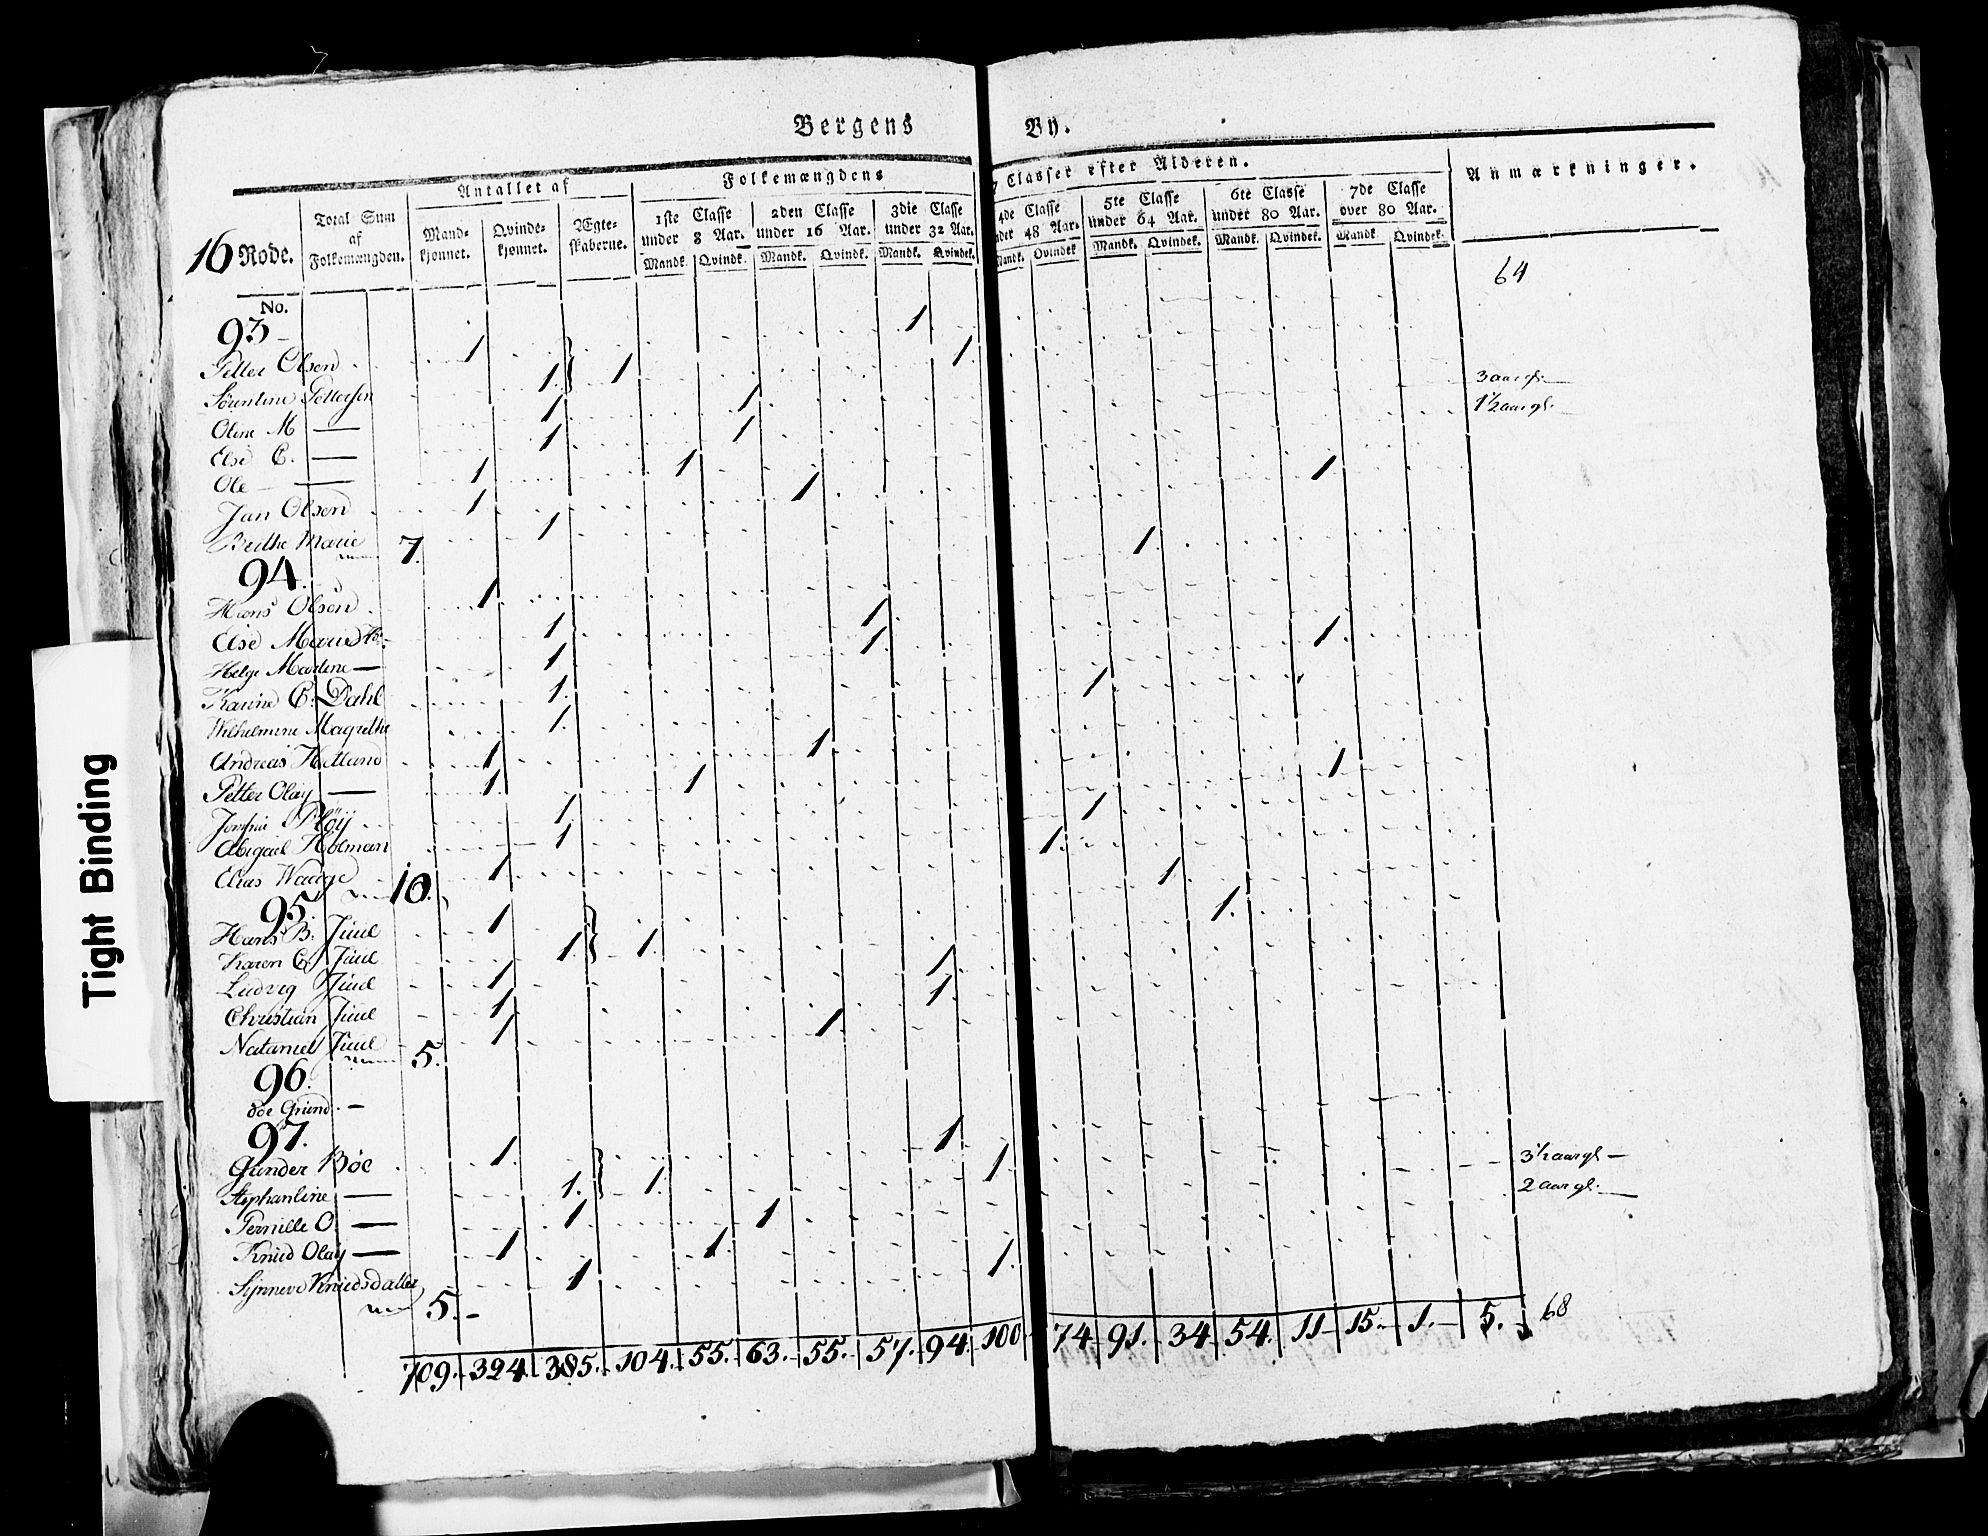 Bergens By.
Antallet af Folkemængdens Classer efter Alderen. Anmærkninger.
16 Rode. Total Sum af Folkemængden. Mand-kjønnet. Qvinde-kjønnet. Ægte-skaberne. 1ste Classe under 8 Aar. 2den Classe under 16 Aar. 3die Classe under 32 Aar. 4de Classe under 48 Aar. 5te Classe under 64 Aar. 6te Classe under 80 Aar. 7de Classe over 80 Aar.
Mandk. Qvindk. Mandk. Qvindek. Mandk. Qvindek. Mandk. Qvindek. Mandk. Qvindek. Mandk. Qvindek. Mandk. Qvindek.
64
No.
93
Petter Olsen 1 1 1
Sørentine Pettersen 1 1
Oline M — 1 1 3 aar gl.
Else C. — 1 1 1½ aar gl.
Ole — 1 1
Jan Olsen 1 1
Berthe Marie 1 1
7.
94.
Hans Olsen 1 1
Else Marie 1 1
Helge Martine — 1 1
Karine C. Dahl 1 1
Wilhelmine Magrethe 1 1
Andreas Hetland 1 1
Petter Olay — 1 1
1 1
Abigael Holman 1 1
Elias Waage 1 1
10.
95.
Hans B. Juul 1 1 1
Karen C. Juul 1 1
Ludvig Juul 1 1
Christian Juul 1 1
Nataniel Juul 1 1
5.
96.
öde Grund. —
97.
Gunder Böe 1 1 1
Stephanline — 1 1
Pernille O. — 1 1 3½ aar gl. —
Knud Olay — 1 1 2 aar gl. —
Synneve Knudsdatter 1 1
5. -
709. 324. 385. 104. 55. 63. 55. 57. 94. 100 74 91. 34. 54. 11 15. 1. 5. 68
Tight Binding